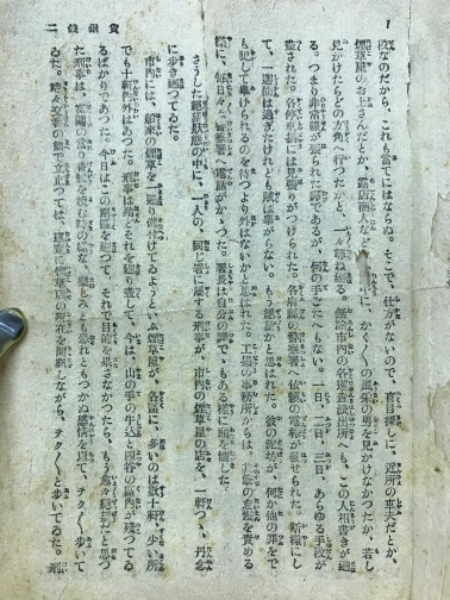 二銭銅貨
1
段なのだから、これも當てにはならぬ。そこで、仕方がないので、盲目探しに、近所の車夫だとか、
煙草屋のお上さんだとか、露店商人など に、かく〱の風采の男を見かけなかつたか、若し
見かけたらどの方角へ行つたかと、一々尋ね廻る。無論市内の各巡査派出所へも、この人相書きが廻
る。つまり非常線が張られた譯であるが、何の手ごたへもない。一日、二日、三日、あらゆる手段が
盡された。各停車場には見張りがつけられた。各府縣の警察署へ依頼の電報が發せられた。斯樣にし
て、一週間は過ぎたけれども賊は擧がらない。もう絶望かと思はれた。彼の泥坊が、何か他の罪をで
も犯して擧げられるのを待つより外はないかと思はれた。工場の事務所からは、其筋の怠慢を責める
樣に、毎日々々警察署へ電話がかゝつた。署長は自分の罪でゞもある樣に頭を惱した。
さうした絶望狀態の中に、一人の、同じ署に屬する刑事が、市內の煙草屋の店を、一軒づゝ、丹念
に歩き廻つてゐた。
市內には、舶來の煙草を一通り備へてゐようといふ煙草屋が、各區に、多いのは數十軒、少い所
でも十軒內外はあつた。刑事は殆どそれを廻り盡して、今は、山の手の牛込と四谷の區內が殘つてゐ
るばかりであつた。今日はこの兩區を廻つて、それで目的を果さなかつたら、もう愈々絶望だと思つ
た刑事は、富鬮の當り番號を讀む時の樣な、樂しみとも恐れともつかぬ感情を以て、テク〱歩いて
ゐた。時々交番の前で立止つては、巡査に煙草店の所在を聞訊しながら、テク〱と歩いてゐた。刑